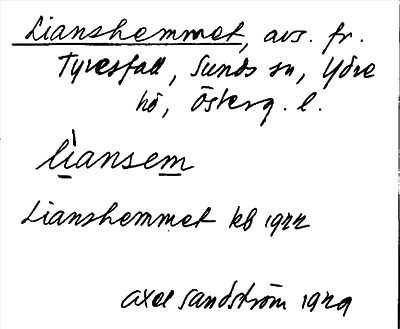 Lianshemmet, avs. fr.
Tyresfall, Sunds sn, Ydre
hd, Österg. l.
lìansem
Lianshemmet kb 1922
Axel Sandström 1929